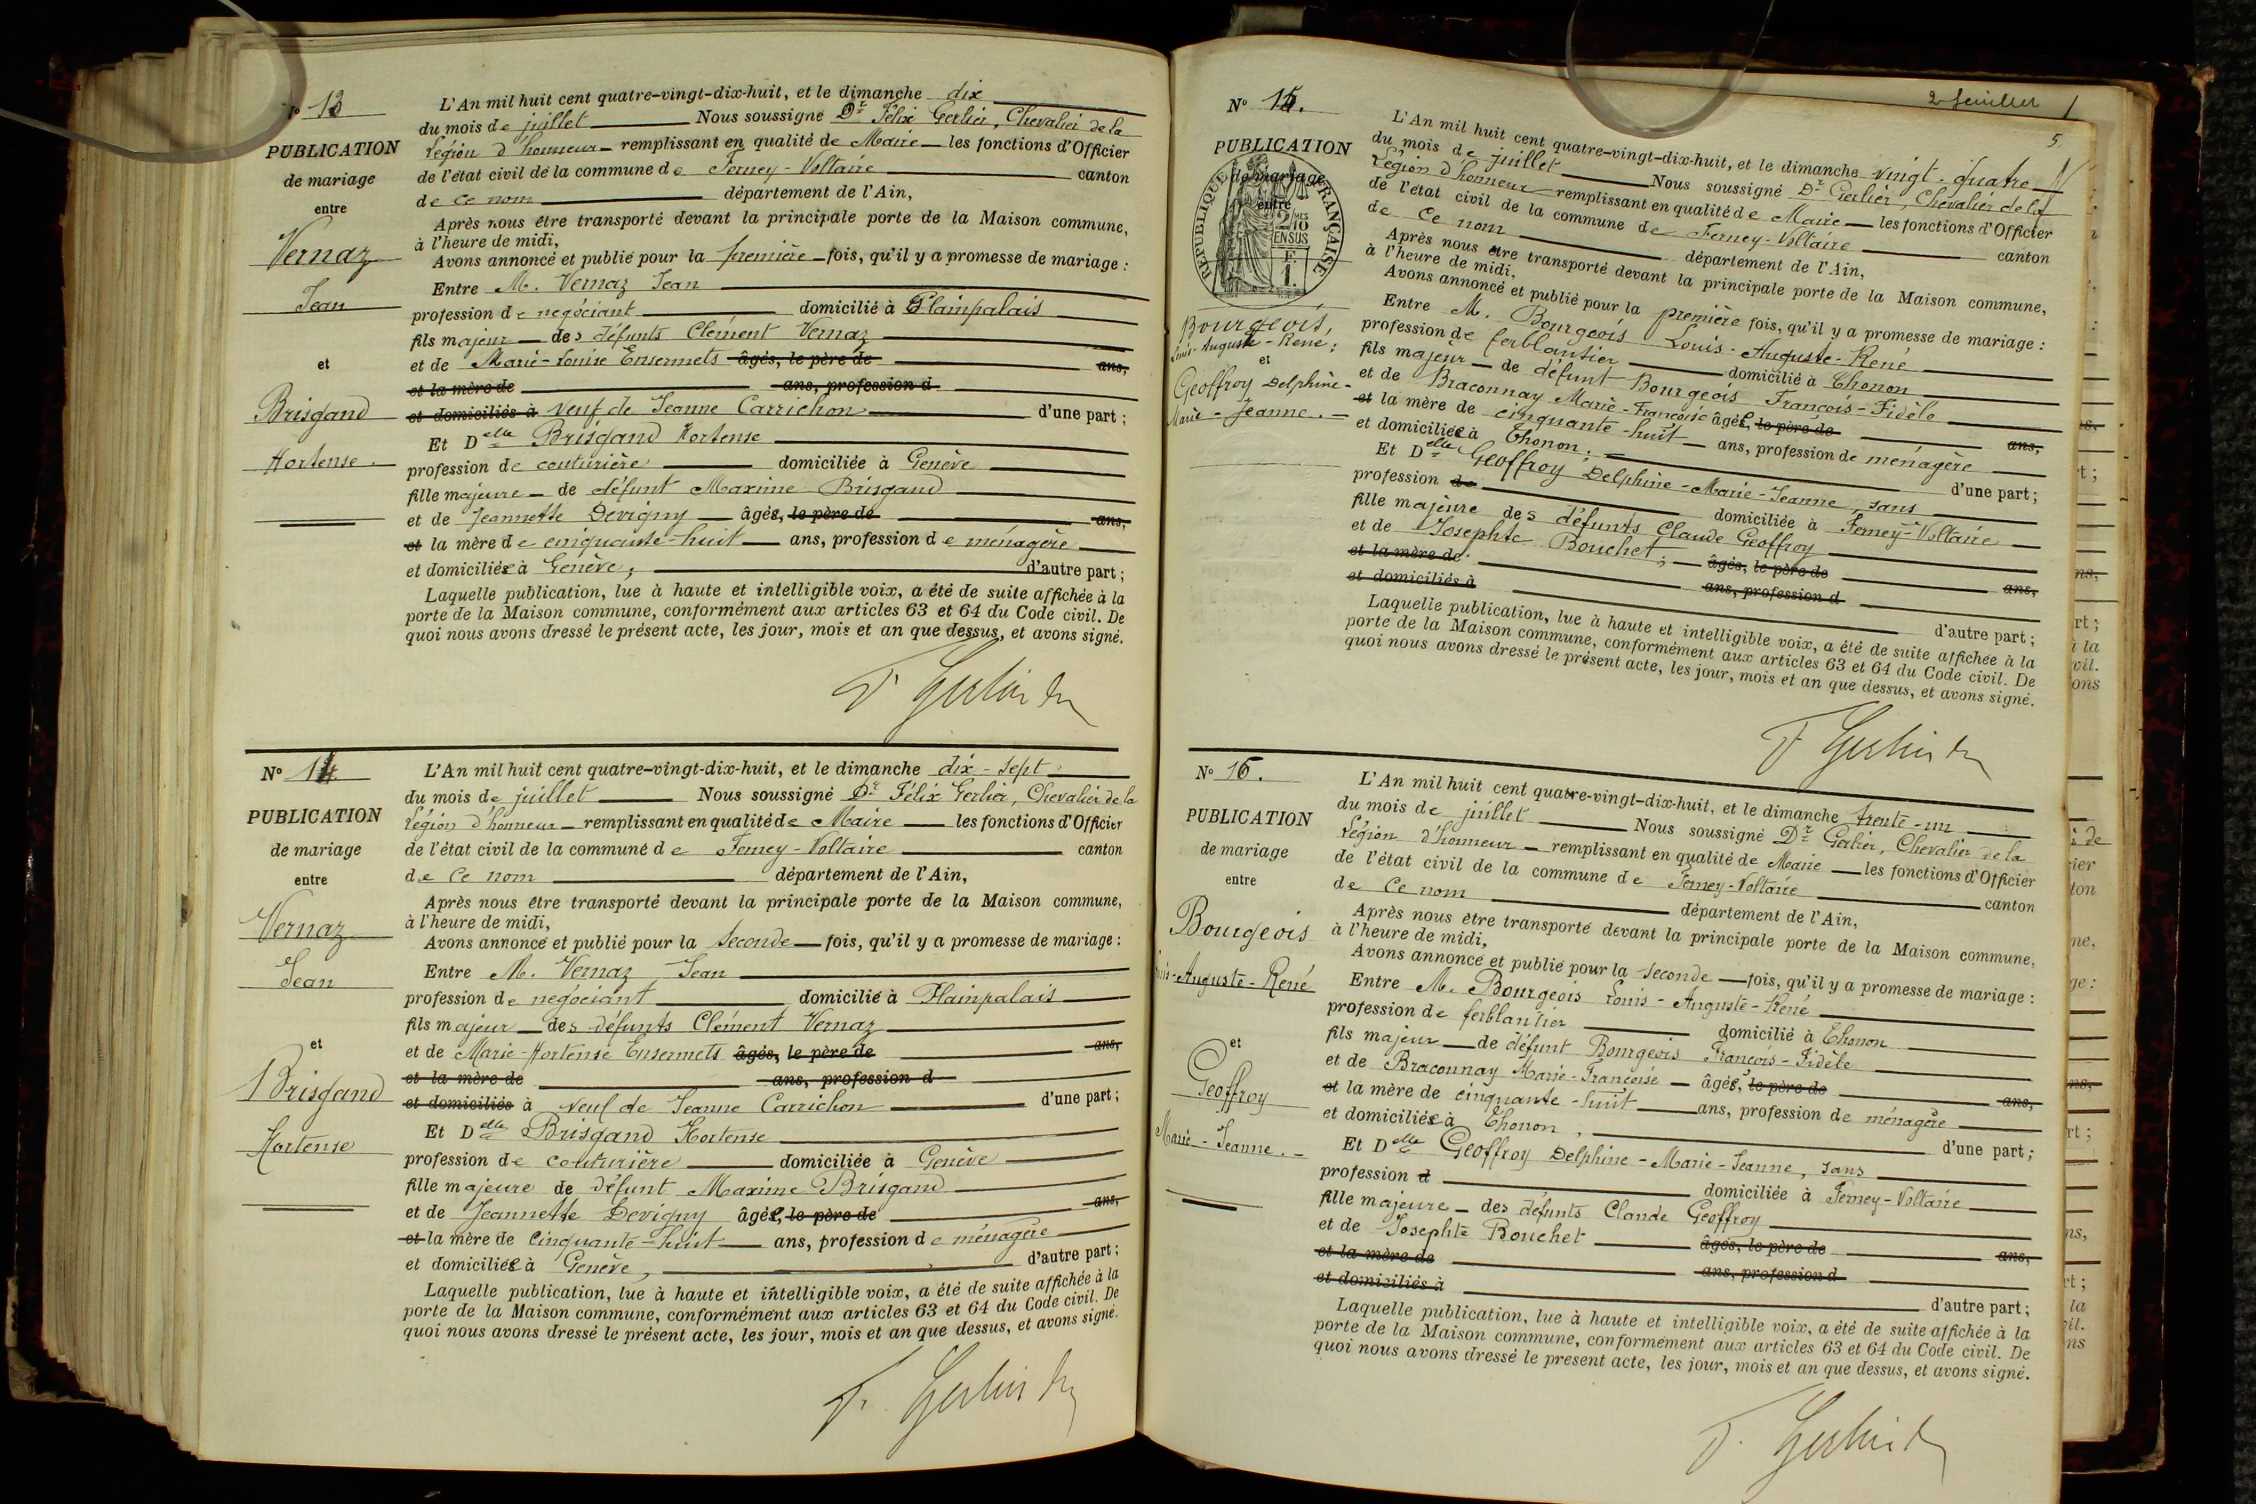 N° 13
PUBLICATION
de mariage
entre
Vernaz
Jean
et
Brisgand
Hortense.
L'An mil huit cent quatre-vingt-dix-huit, et le dimanche dix
du mois de juillet Nous soussigné Dr Félix Gerlier, Chevalier de la
Légion d'honneur remplissant en qualité de Maire les fonctions d'Officier
de l'état civil de la commune de Ferney-Voltaire canton
de ce nom département de l'Ain,
Après nous être transporté devant la principale porte de la Maison commune,
à l'heure de midi,
Avons annoncé et publié pour la première fois, qu'il y a promesse de mariage :
Entre M. Vernaz Jean
profession de négociant domicilié à Plainpalais
fils majeur des défunts Clément Vernaz
et de Marie-Louise Ensermets âgés, le père de ans,
et la mère de ans, profession d
et domiciliés à veuf de Jeanne Carrichon d'une part ;
Et Delle Brisgand Hortense
profession de couturière domiciliée à Genève
fille majeure de défunt Maxime Brisgand
et de Jeannette Devigny âgée, le père de ans,
et la mère de cinquante-huit ans, profession de ménagère
et domiciliée à Genève, d'autre part ;
Laquelle publication, lue à haute et intelligible voix, a été de suite affichée à la
porte de la Maison commune, conformément aux articles 63 et 64 du Code civil. De
quoi nous avons dressé le présent acte, les jour, mois et an que dessus, et avons signé.
F Gerlier Dr
N° 14
PUBLICATION
de mariage
entre
Vernaz
Jean
et
Brisgand
Hortense
L'An mil huit cent quatre-vingt-dix-huit, et le dimanche dix-sept
du mois de juillet Nous soussigné Dr Félix Gerlier, Chevalier de la
Légion d'honneur remplissant en qualité de Maire les fonctions d'Officier
de l'état civil de la commune de Ferney-Voltaire canton
de ce nom département de l'Ain,
Après nous être transporté devant la principale porte de la Maison commune,
à l'heure de midi,
Avons annoncé et publié pour la seconde fois, qu'il y a promesse de mariage :
Entre M. Vernaz Jean
profession de négociant domicilié à Plainpalais
fils majeur des défunts Clément Vernaz
et de Marie-Hortense Ensermets âgés, le père de ans,
et la mère de ans, profession d
et domiciliés à veuf de Jeanne Carrichon d'une part ;
Et Delle Brisgand Hortense
profession de couturière domiciliée à Genève
fille majeure de défunt Maxime Brisgand
et de Jeannette Devigny âgée, le père de ans,
et la mère de cinquante-huit ans, profession de ménagère
et domiciliée à Genève, d'autre part ;
Laquelle publication, lue à haute et intelligible voix, a été de suite affichée à la
porte de la Maison commune, conformément aux articles 63 et 64 du Code civil. De
quoi nous avons dressé le présent acte, les jour, mois et an que dessus, et avons signé.
F. Gerlier Dr
2 feuillet
5
N° 15.
PUBLICATION
de mariage
entre
RÉPUBLIQUE FRANÇAISE
2/10 MES
EN SUS
F
1.
Bourgeois,
Louis-Auguste-René ;
et
Geoffroy Delphine-
Marie-Jeanne.
L'An mil huit cent quatre-vingt-dix-huit, et le dimanche vingt-quatre
du mois de juillet Nous soussigné Dr Gerlier, Chevalier de la
Légion d'honneur remplissant en qualité de Maire les fonctions d'Officier
de l'état civil de la commune de Ferney-Voltaire canton
de ce nom département de l'Ain,
Après nous être transporté devant la principale porte de la Maison commune,
à l'heure de midi,
Avons annoncé et publié pour la première fois, qu'il y a promesse de mariage :
Entre M. Bourgeois Louis-Auguste-René
profession de ferblantier domicilié à Thonon
fils majeur de défunt Bourgeois François-Fidèle
et de Braconnay Marie-Françoise âgée, le père de ans,
et la mère de cinquante-huit ans, profession de ménagère
et domiciliée à Thonon. d'une part ;
Et Delle Geoffroy Delphine-Marie-Jeanne, sans
profession de domiciliée à Ferney-Voltaire
fille majeure des défunts Claude Geoffroy
et de Josephte Bouchet ; âgés, le père de ans,
et la mère de ans, profession d
et domiciliés à d'autre part ;
Laquelle publication, lue à haute et intelligible voix, a été de suite affichée à la
porte de la Maison commune, conformément aux articles 63 et 64 du Code civil. De
quoi nous avons dressé le présent acte, les jour, mois et an que dessus, et avons signé.
F Gerlier Dr
N° 16.
PUBLICATION
de mariage
entre
Bourgeois
Louis-Auguste-René
et
Geoffroy
Marie-Jeanne.
L'An mil huit cent quatre-vingt-dix-huit, et le dimanche trente-un
du mois de juillet Nous soussigné Dr Gerlier, Chevalier de la
Légion d'honneur remplissant en qualité de Maire les fonctions d'Officier
de l'état civil de la commune de Ferney-Voltaire canton
de ce nom département de l'Ain,
Après nous être transporté devant la principale porte de la Maison commune,
à l'heure de midi,
Avons annoncé et publié pour la seconde fois, qu'il y a promesse de mariage :
Entre M. Bourgeois Louis-Auguste-René
profession de ferblantier domicilié à Thonon
fils majeur de défunt Bourgeois François-Fidèle
et de Braconnay Marie-Françoise âgée, le père de ans,
et la mère de cinquante-huit ans, profession de ménagère
et domiciliée à Thonon, d'une part ;
Et Delle Geoffroy Delphine-Marie-Jeanne, sans
profession d domiciliée à Ferney-Voltaire
fille majeure des défunts Claude Geoffroy
et de Josephte Bouchet âgés, le père de ans,
et la mère de ans, profession d
et domiciliés à d'autre part ;
Laquelle publication, lue à haute et intelligible voix, a été de suite affichée à la
porte de la Maison commune, conformément aux articles 63 et 64 du Code civil. De
quoi nous avons dressé le présent acte, les jour, mois et an que dessus, et avons signé.
F. Gerlier Dr